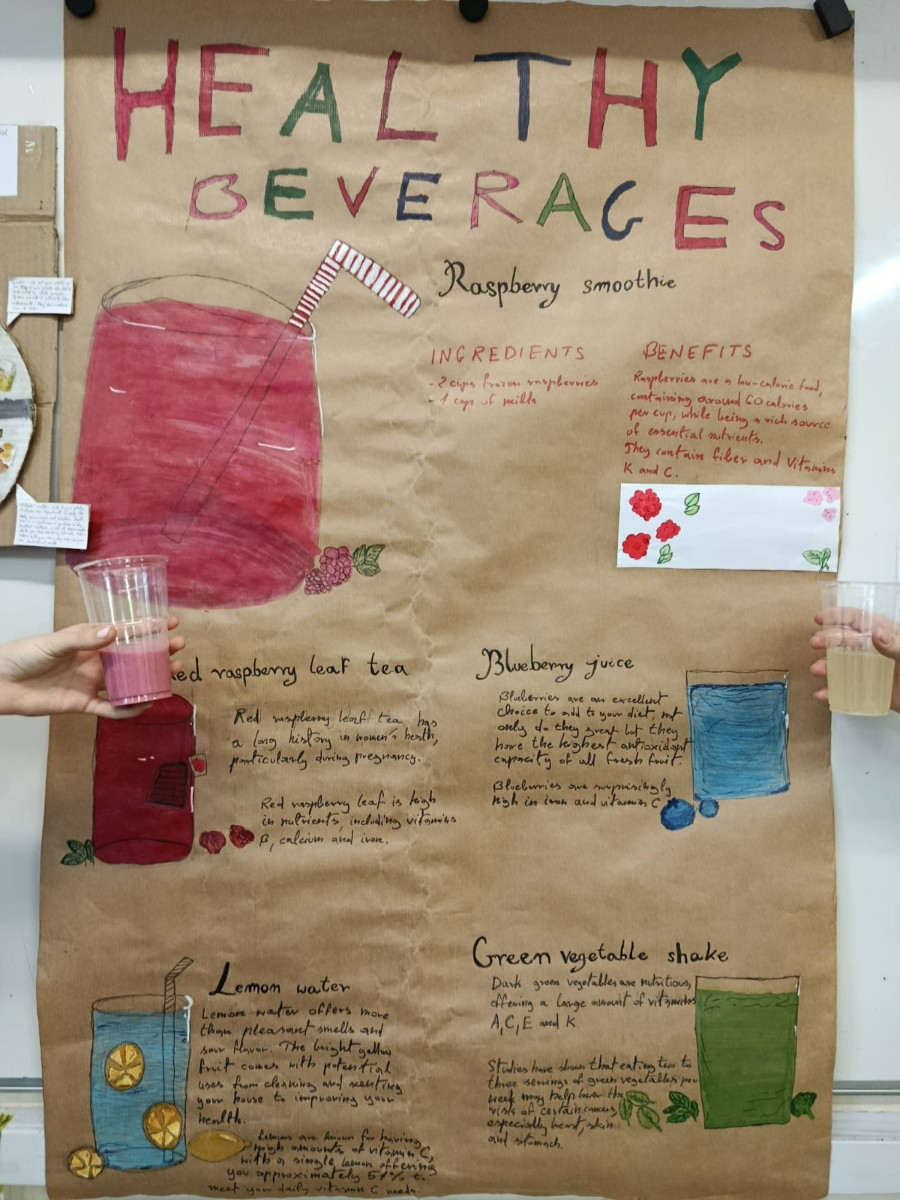 HEALTHY
BEVERAGES
Raspberry smoothie
INGREDIENTS
- 2 cups frozen raspberries
- 1 cup of milk
BENEFITS
Raspberries are a low-calorie food,
containing around 60 calories
per cup, while being a rich source
of essential nutrients.
They contain fiber and Vitamins
K and C.
ed raspberry leaf tea
Red raspberry leaf tea has
a long history in women's health,
particularly during pregnancy.
Red raspberry leaf is high
in nutrients, including vitamins
B, calcium and iron.
Blueberry juice
Blueberries are an excellent
choice to add to your diet, not
only do they great but they
have the highest antioxidant
capacity of all fresh fruit.
Blueberries are surprisingly
high in iron and vitamins C
Lemon water
Lemon water offers more
than pleasant smells and
sour flavor. The bright yellow
fruit comes with potential
uses from cleaning and scenting
your house to improving your
health.
Lemons are known for having
high amounts of vitamin C,
with a single lemon offering
you approximately 51% to
meet your daily vitamin C needs.
Green vegetable shake
Dark green vegetables are nutritious,
offering a large amount of vitamins
A, C, E and K
Studies have shown that eating two to
three servings of green vegetables per
week may help lower the
risks of certain cancers,
especially heart, skin
and stomach.